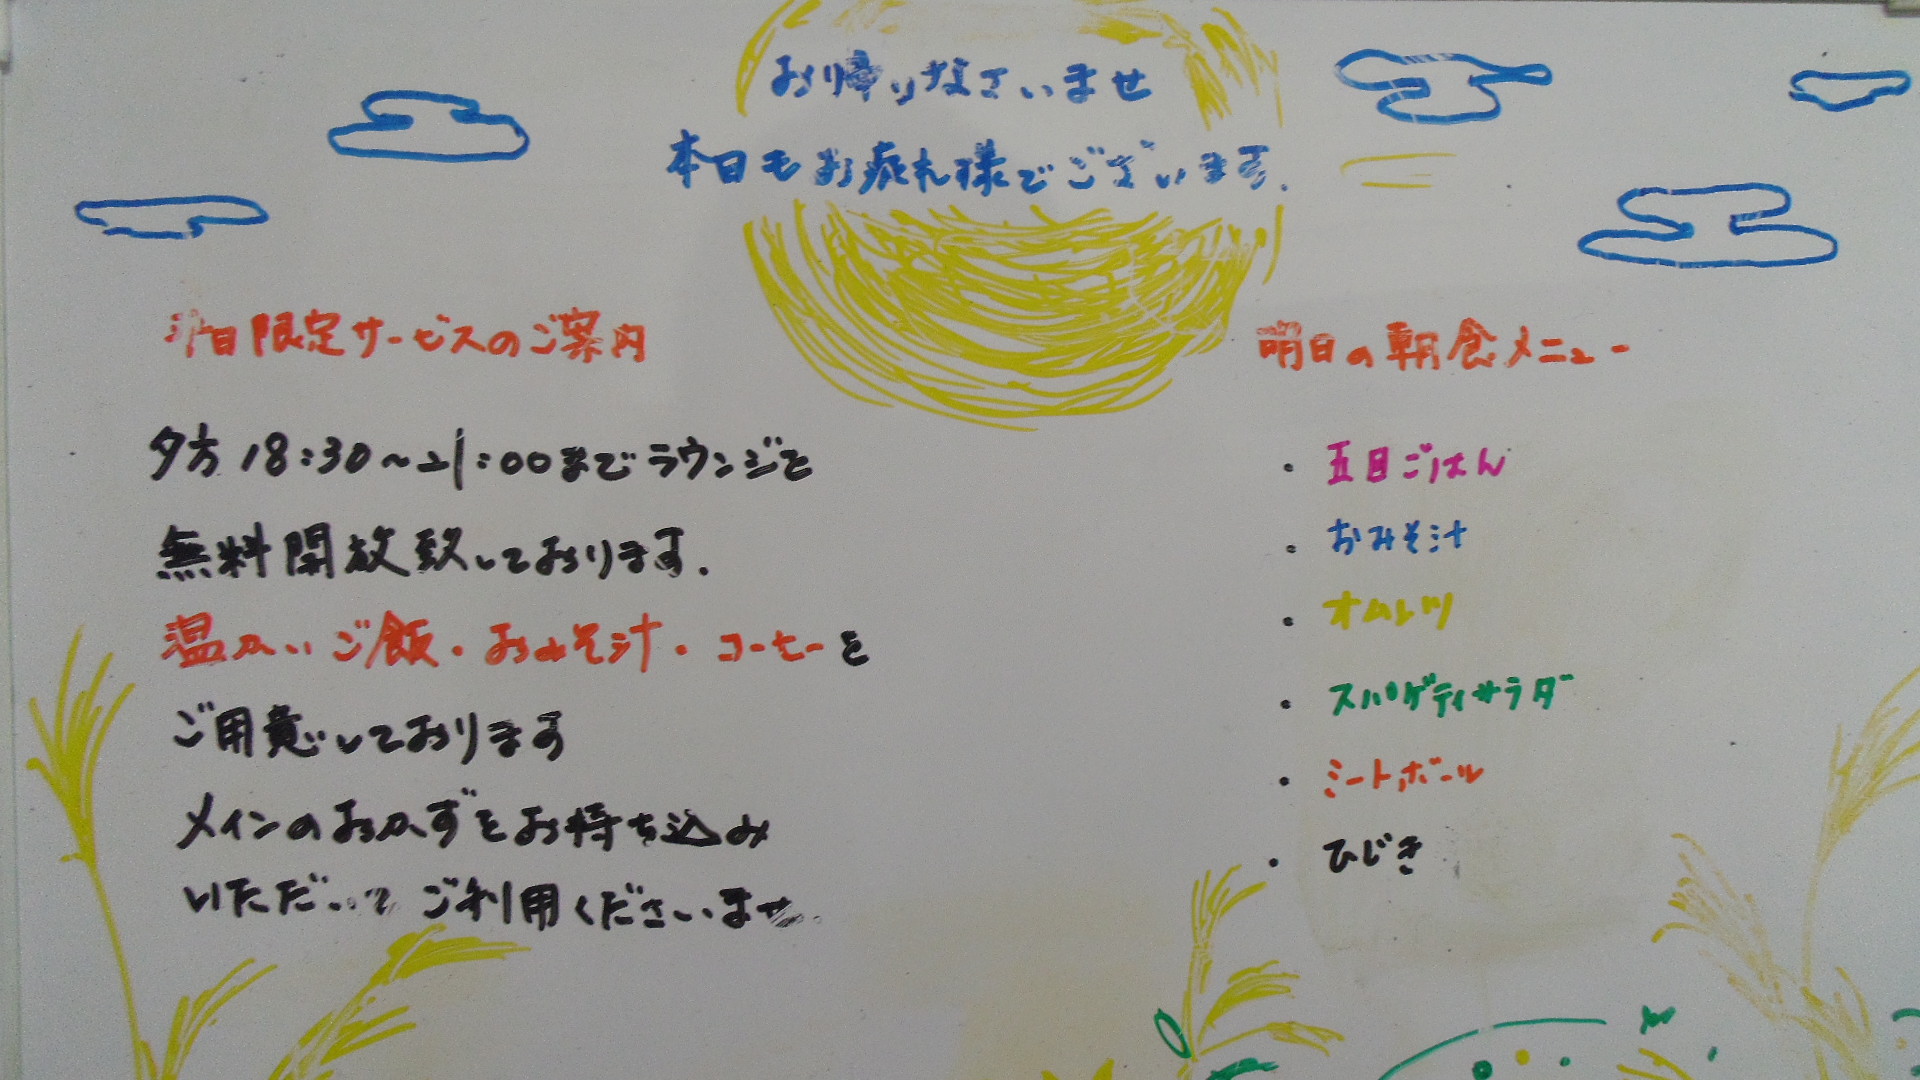 お帰りなさいませ
本日もお疲れ様でございます.
日限定サービスのご案内
夕方18:30～21:00までラウンジを
無料開放致しております.
温かいご飯・おみそ汁・コーヒーを
ご用意しております
メインのおかずをお持ち込み
いただいて ご利用くださいませ.
明日の朝食メニュー
・五目ごはん
・おみそ汁
・オムレツ
・スパゲティサラダ
・ミートボール
・ひじき